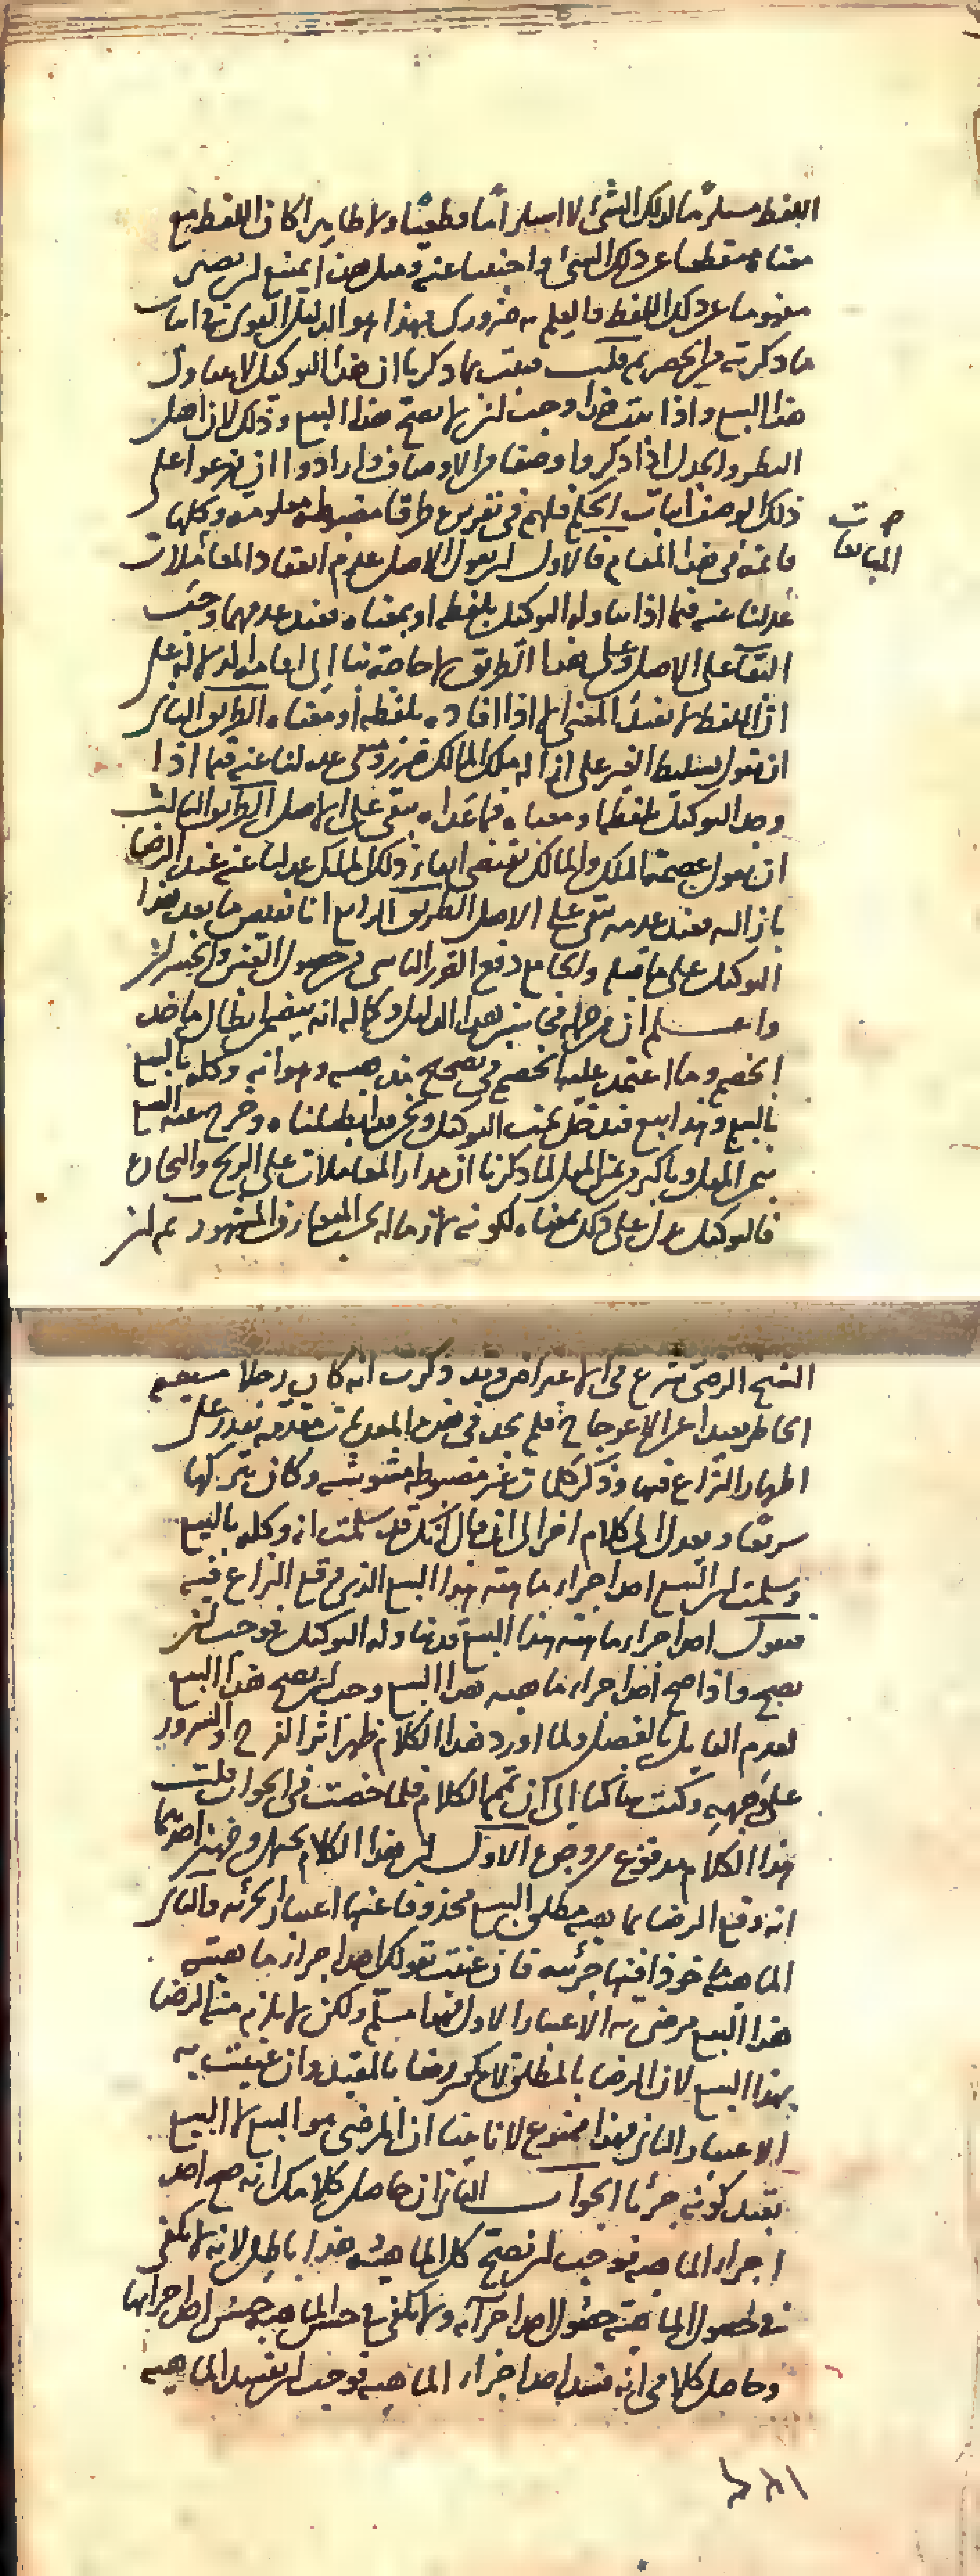 اللفظ مستلزما لذلك الشئ لا استلزاما قطعيا ولا ظاهرا كان اللفظ مع
معناه منقطعا عن ذلك الشئ واجنبيا عنه ومثل هذا يمتنع ان يصير
مفهوما عن ذلك اللفظ والعلم به ضروري فهذا هو الدليل القوي في اثبات
ما ذكرته ثم قلت فثبت بما ذكرنا ان هذا التوكيل لا يتناول
هذا البيع واذا ثبت هذا وجب ان لا يصح هذا البيع وذلك لان اهل
النظر والجدل اذا ذكروا وصفا من الاوصاف وارادوا ان يفرعوا على
ذلك الوصف اثبات الحكم فلهم في تقريره طرق مضبوطة معلومة وكلها
قائمة في هذا المقام فالاول ان يقول الاصل عدم انعقاد المعاملات
عدلنا عنه فيما اذا تناوله التوكيل بلفظه او بمعناه فعند عدمهما وجب
البقاء على الاصل وعلى هذا الطريق لا حاجة بنا الى اقامة الدلالة على
ان اللفظ لا يفيد المعنى الا اذا افاده بلفظه او معناه الطريق الثاني
ان نقول تسليط الغير على ازالة ملك المالك ضرر عدلنا عنه فيما اذا
وجد التوكيل لفظا ومعناه فما عداه يبقى على الاصل الطريق الثالث
ان نقول عصمة الملك والمالك تقتضي ابقاء ذلك الملك عدلنا عنه عند الرضا
بازالته فعند عدمه يبقى على الاصل الطريق الرابع انا نقيس ما بعد هذا
التوكيل على ما قبله والجامع دفع الضرر الناشئ من حصول الغبن والخسران
واعلم ان من جملة هذا الدليل وكماله انه يتضمن ابطال مأخذ
الخصم وما اعتمد عليه الخصم في تصحيح مذهبه وهو انه وكله بالبيع
بالبيع وهذا بيع فدخل تحت التوكيل ونحن قد ابطلناه وخرج عنه البيع
بثمن المثل وباكثر من ثمن المثل لما ذكرنا ان مدار المعاملات على الربح والتجارة
فالتوكيل دل على ذلك بمعناه لكونه لازما له بحسب المتعارف المشهور ثم ان
المبايعات
الشيخ الرضي شرع في الاعتراض وقد ذكرت انه كان رجلا مستقيم
الخاطر بعيدا عن الاعوجاج فلم يجد في هذه المقدمات مقدمة يقدر على
اظهار النزاع فيها وذكر كلمات غير مضبوطة مشوشة وكان يتركها
سريعا ويعدل الى كلام اخر الى ان قال انك قد سلمت انه وكله بالبيع
وسلمت ان البيع احد اجزاء ماهية هذا البيع الذي وقع النزاع فيه
فنقول احد اجزاء ماهية هذا البيع قد تناوله التوكيل فوجب ان
يصح واذا صح احد اجزاء ماهية هذا البيع وجب ان يصح هذا البيع
لعدم القايل بالفصل ولما اورد هذا الكلام ظهر اثر الفرح والسرور
على وجهه وكنت ساكتا الى ان تمم الكلام فلما خضت في الجواب قلت
هذا الكلام مدفوع من وجوه الاول ان هذا الكلام يحتمل وجهين احدهما
انه وقع الرضا بماهية مطلق البيع محذوفا عنها اعتبار الجزئية والثاني
الماهية مأخوذا فيها جزئية فان عنيت بقولك احد اجزاء ماهية
هذا البيع مرضي به الاعتبار الاول فهذا مسلم ولكن لا يلزم منه الرضا
بهذا البيع لان الرضا بالمطلق لا يكون رضا بالمقيد وان عنيت به
الاعتبار الثاني فهذا ممنوع لانا بينا ان المرضي هو البيع لا البيع
بقيد كونه جزئا الجواب الثاني ان حاصل كلامك انه صح احد
اجزاء الماهية فوجب ان تصح كل الماهية هذا باطل لانه لا يكفي
في حصول الماهية حصول احد اجزائه ولا يكفي في حسن الماهية حسن احد اجزائها
وحاصل كلامي انه فسد احد اجزاء الماهية فوجب ان تفسد الماهية